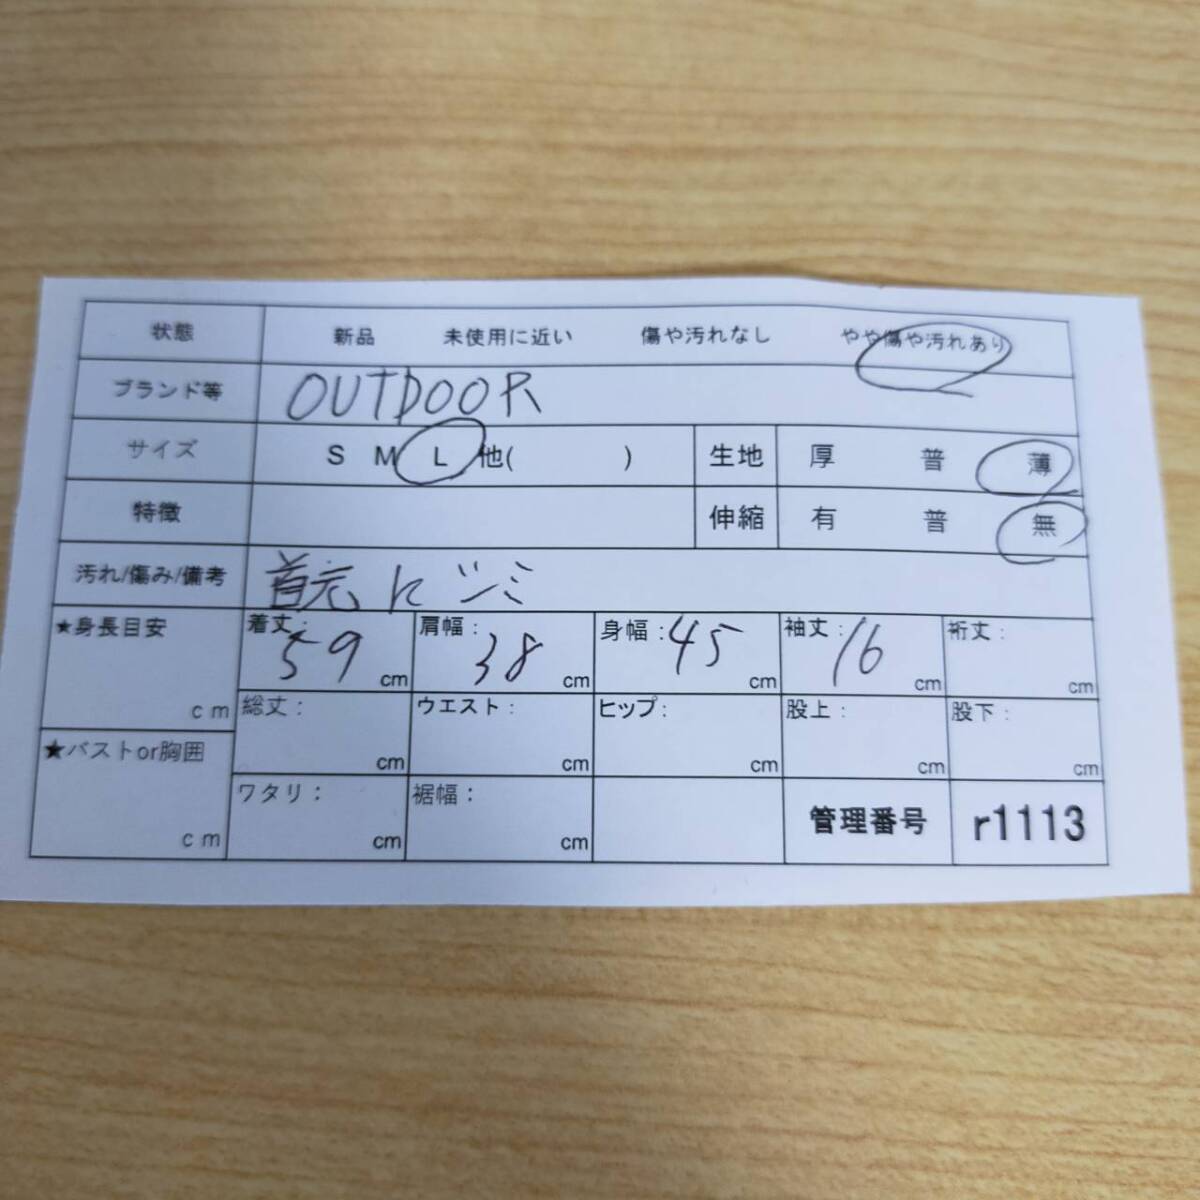 状態 新品 未使用に近い 傷や汚れなし やや傷や汚れあり
ブランド等 OUTDOOR
サイズ S M L 他( ) 生地 厚 普 薄
特徴 伸縮 有 普 無
汚れ/傷み/備考 首元にシミ
★身長目安 cm 着丈: 59 cm 肩幅: 38 cm 身幅: 45 cm 袖丈: 16 cm 裄丈: cm
総丈: cm ウエスト: cm ヒップ: cm 股上: cm 股下: cm
★バストor胸囲 cm ワタリ: cm 裾幅: cm 管理番号 r1113